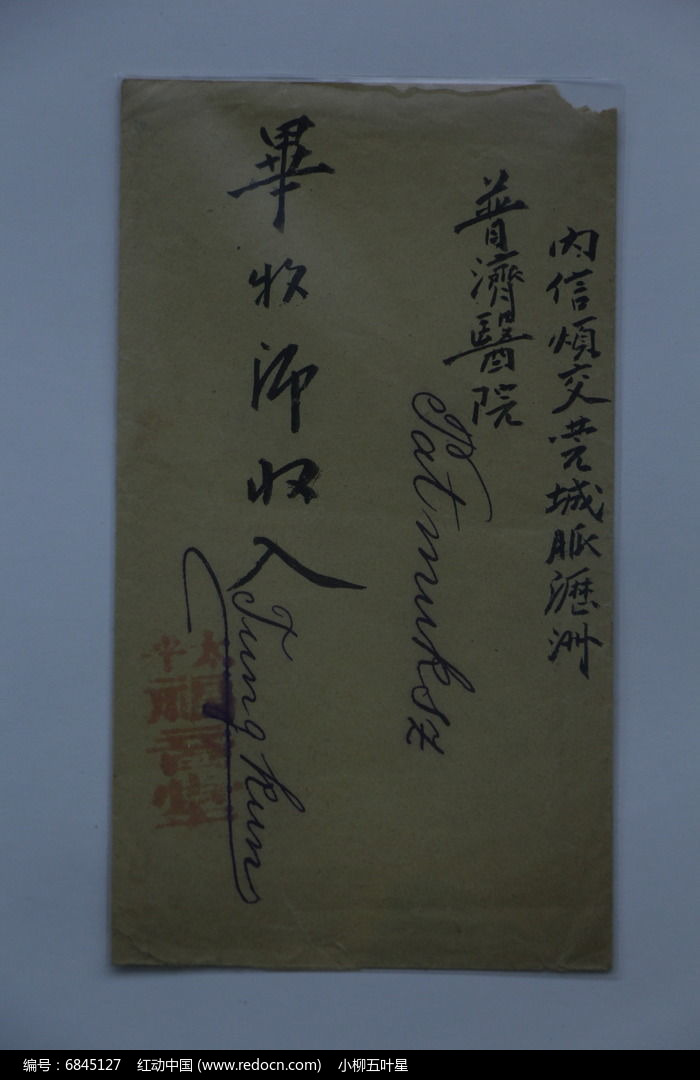 內信煩交莞城脈瀝洲
普濟醫院
畢牧師收入
Patmuksz
Tungkun
太平
福音堂
编号：6845127 红动中国 (www.redocn.com) 小柳五叶星